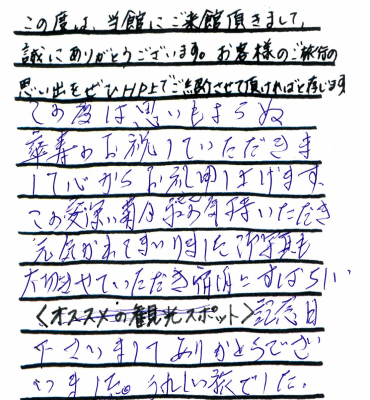 この度は、当館にご来館頂きまして、
誠にありがとうございます。お客様のご旅行の
思い出をぜひHP上でご紹介させて頂ければと存じます
この度は思いもよらぬ
華寿のお祝していただきま
して心からお礼申し上げます、
この
元気がわいてまいりました
大切させていただき すばらしい
<オススメの観光スポット>記念日
下さいましてありがとうござ
いました。うれしい旅でした。